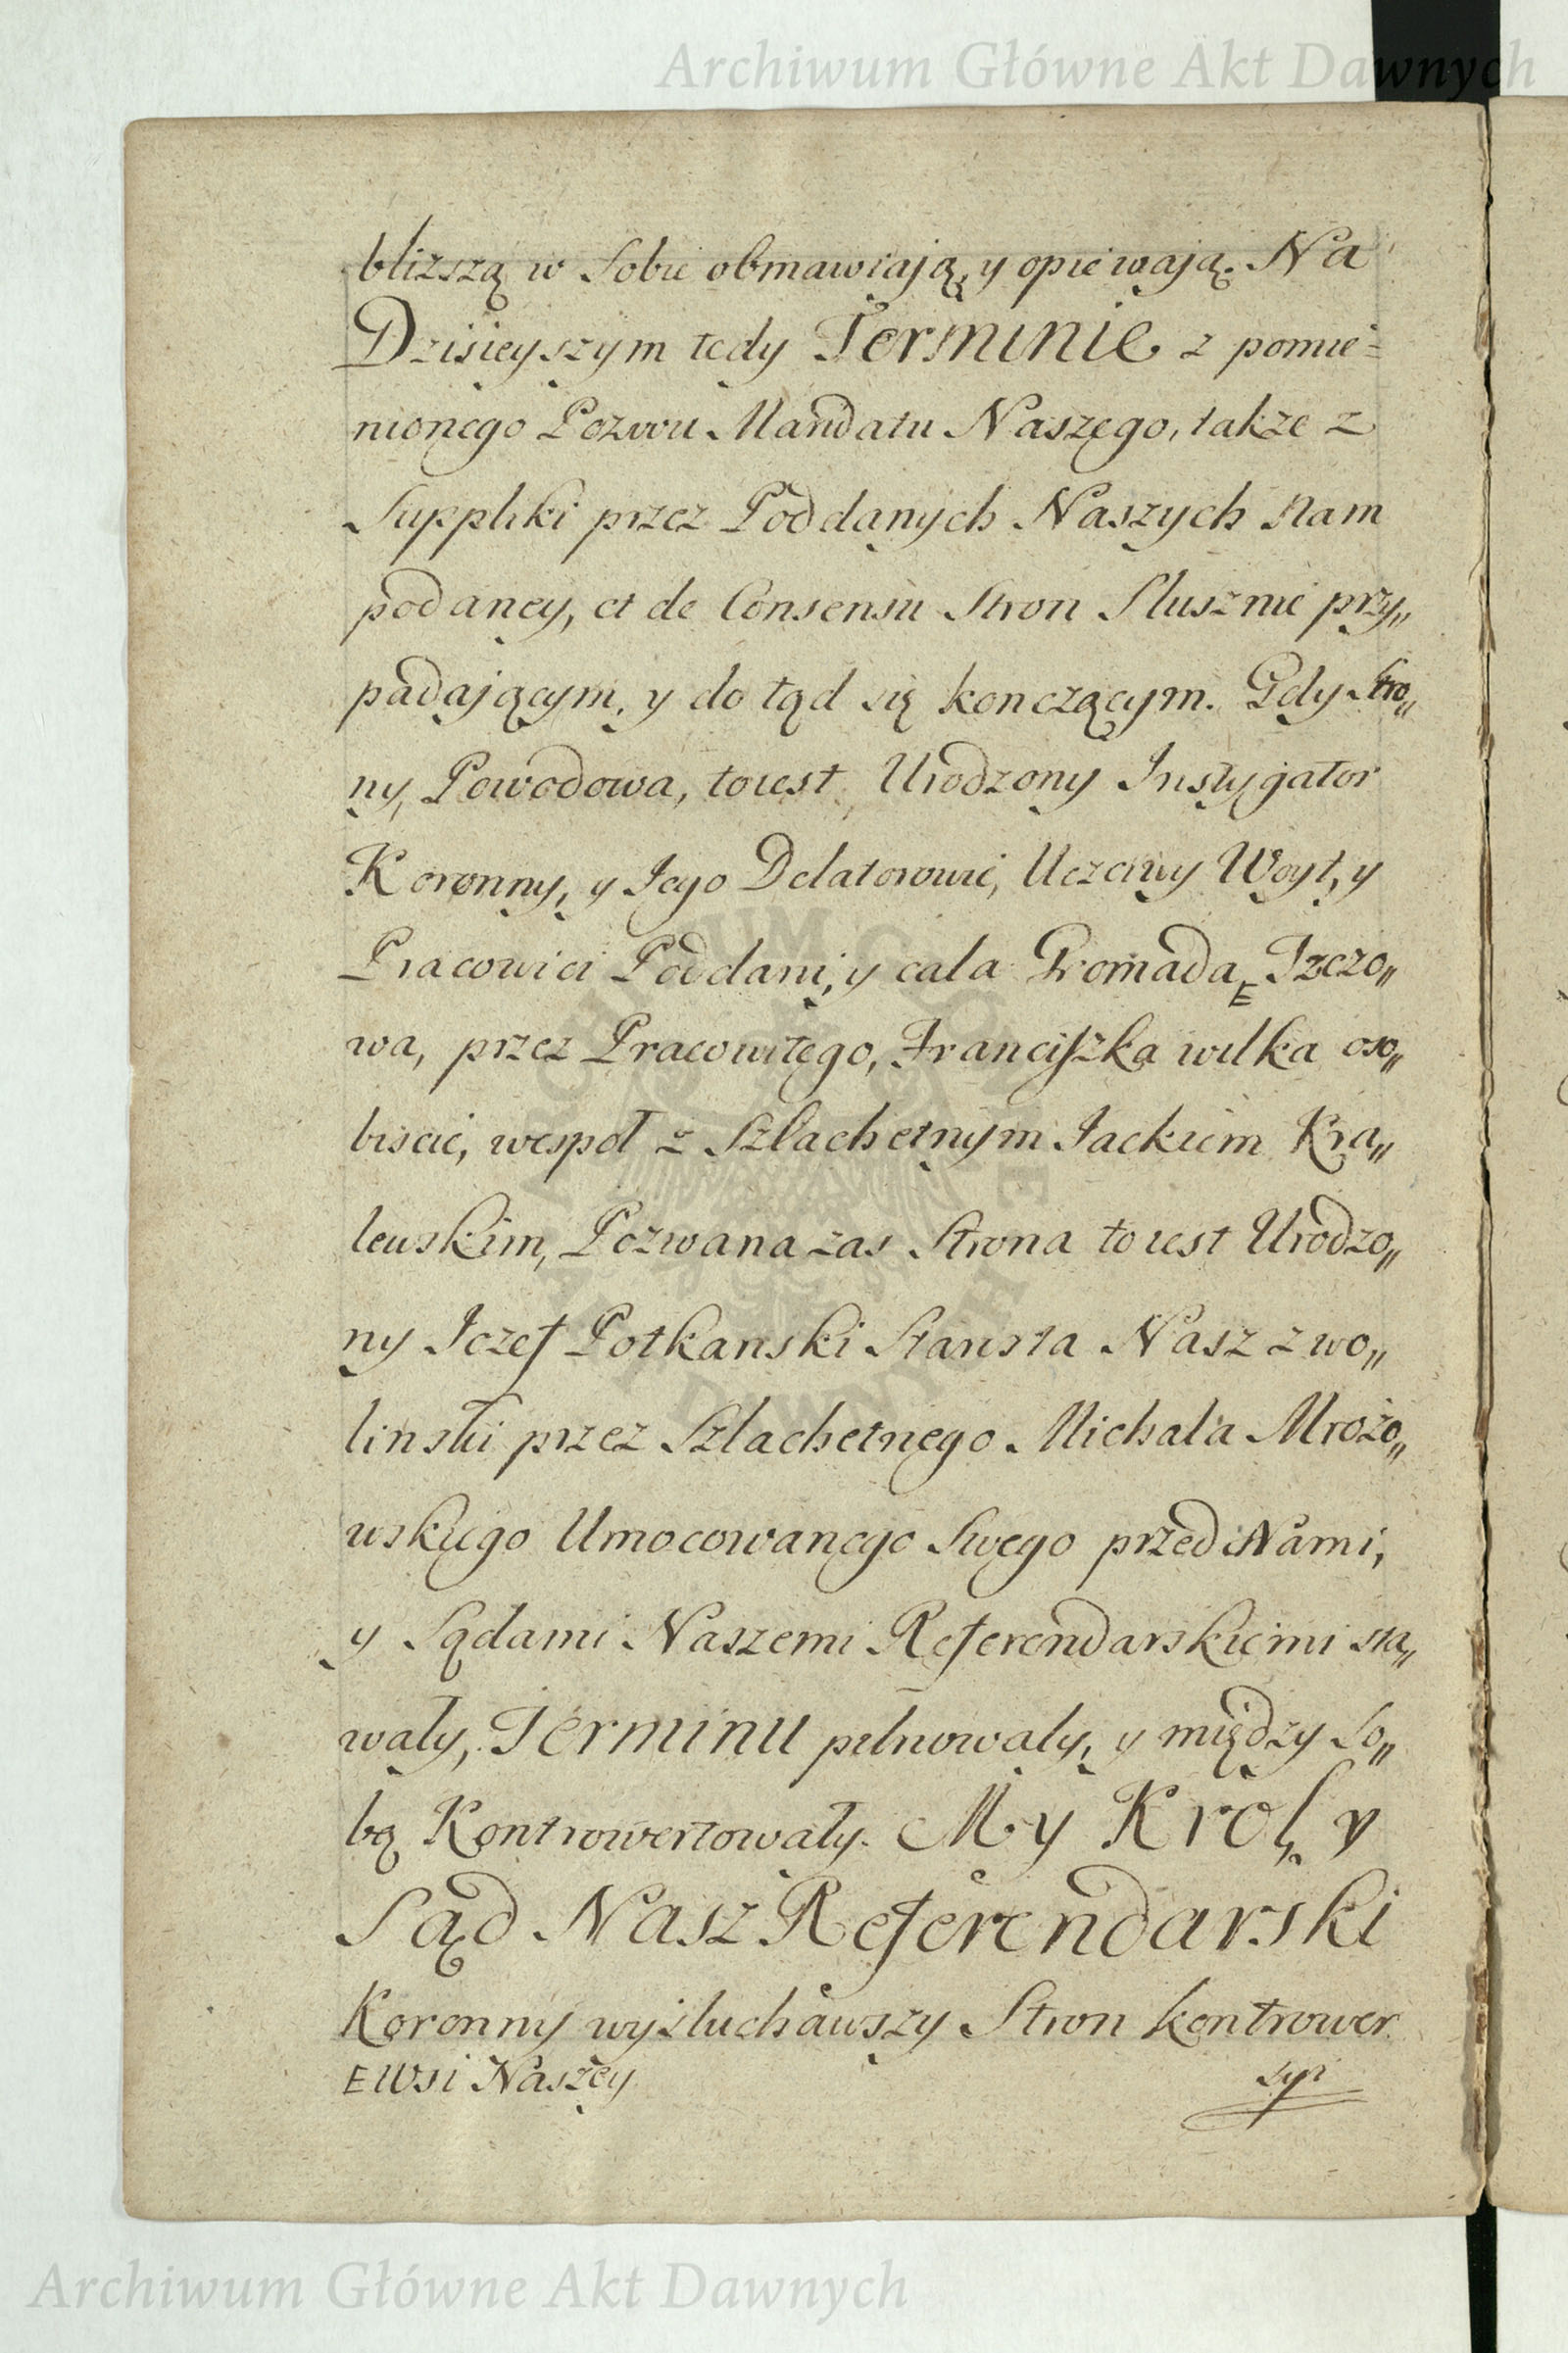 Archiwum Główne Akt Dawnych
bliższą w Sobie obmawiają, y opiewają. Na
Dzisieyszym tedy Terminie z pomie=
nionego Pozwu Mandatu Naszego, także z
Suppliki przez Poddanych Naszych Nam
podaney, et de Consensu Stron Słusznie przy„
padającym, y do tąd się kończącym. Gdy Stro„
ny, Powodowa, toiest Urodzony Instygator
Koronny, y Jego Delatorowie, Uczciwy Woyt, y
Pracowici Poddani, y cała Gromada E Jzczo„
wa, przez Pracowitego, Franciszka wilka oso„
biscie, wespoł z Szlachetnym Jackiem Kra„
lewskim, Pozwana zas Strona to iest Urodzo„
ny Jozef Potkanski Starosta Nasz zwo„
linski przez Szlachetnego Michała Mrozo„
wskiego Umocowanego Swego przed Nami,
y Sądami Naszemi Referendarskiemi sta„
wały, Terminu pilnowały, y między So„
bą Kontrowertowały. My Krol, y
Sąd Nasz Referendarski
Koronny wysłuchawszy Stron kontrower
E Wsi Naszey
syi
ARCHIWUM GŁÓWNE AKT DAWNYCH
Archiwum Główne Akt Dawnych